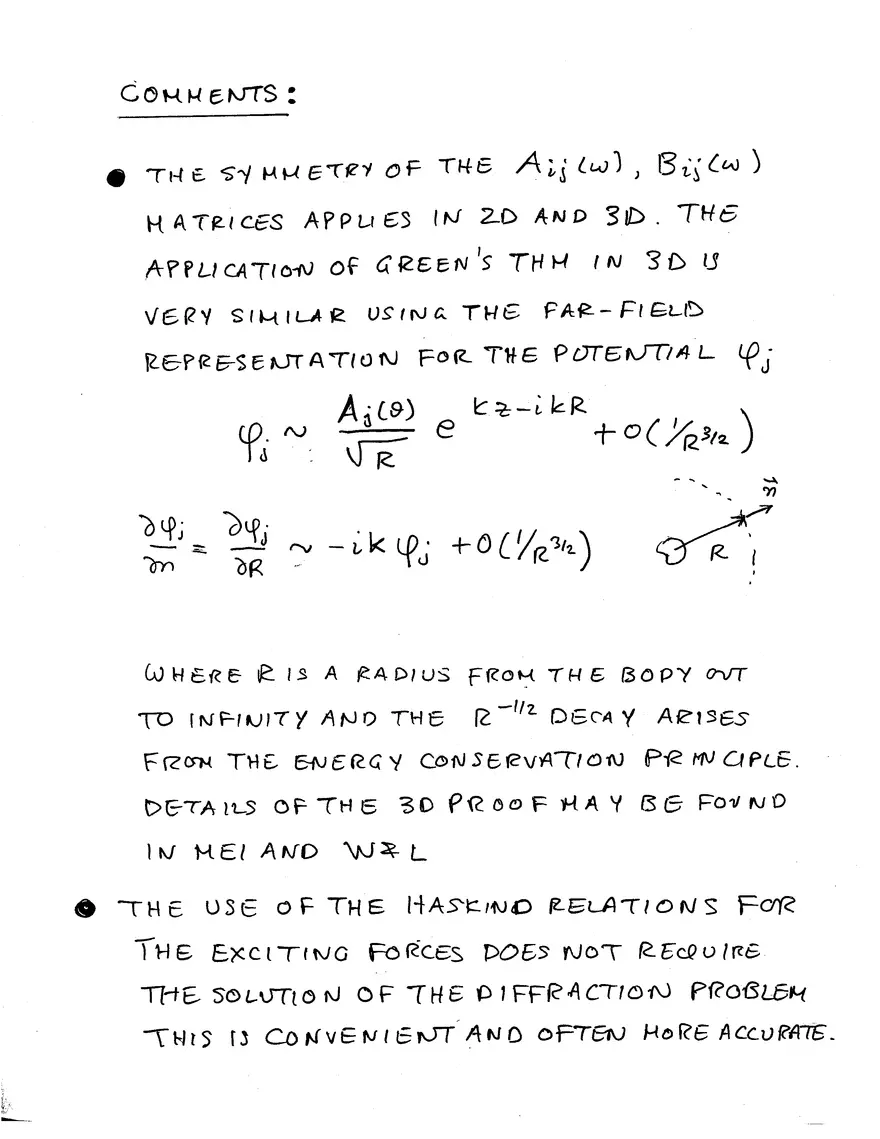 COMMENTS:
● THE SYMMETRY OF THE A_{ij}(ω), B_{ij}(ω)
MATRICES APPLIES IN 2D AND 3D. THE
APPLICATION OF GREEN'S THM IN 3D IS
VERY SIMILAR USING THE FAR-FIELD
REPRESENTATION FOR THE POTENTIAL φ_j
φ_j ~ A_j(θ)/√R e^{kz-ikR} + O(1/R^{3/2})
∂φ_j/∂n = ∂φ_j/∂R ~ -ik φ_j + O(1/R^{3/2})
n⃗
R
WHERE R IS A RADIUS FROM THE BODY OUT
TO INFINITY AND THE R^{-1/2} DECAY ARISES
FROM THE ENERGY CONSERVATION PRINCIPLE.
DETAILS OF THE 3D PROOF MAY BE FOUND
IN MEI AND W&L
● THE USE OF THE HASKIND RELATIONS FOR
THE EXCITING FORCES DOES NOT REQUIRE
THE SOLUTION OF THE DIFFRACTION PROBLEM
THIS IS CONVENIENT AND OFTEN MORE ACCURATE.